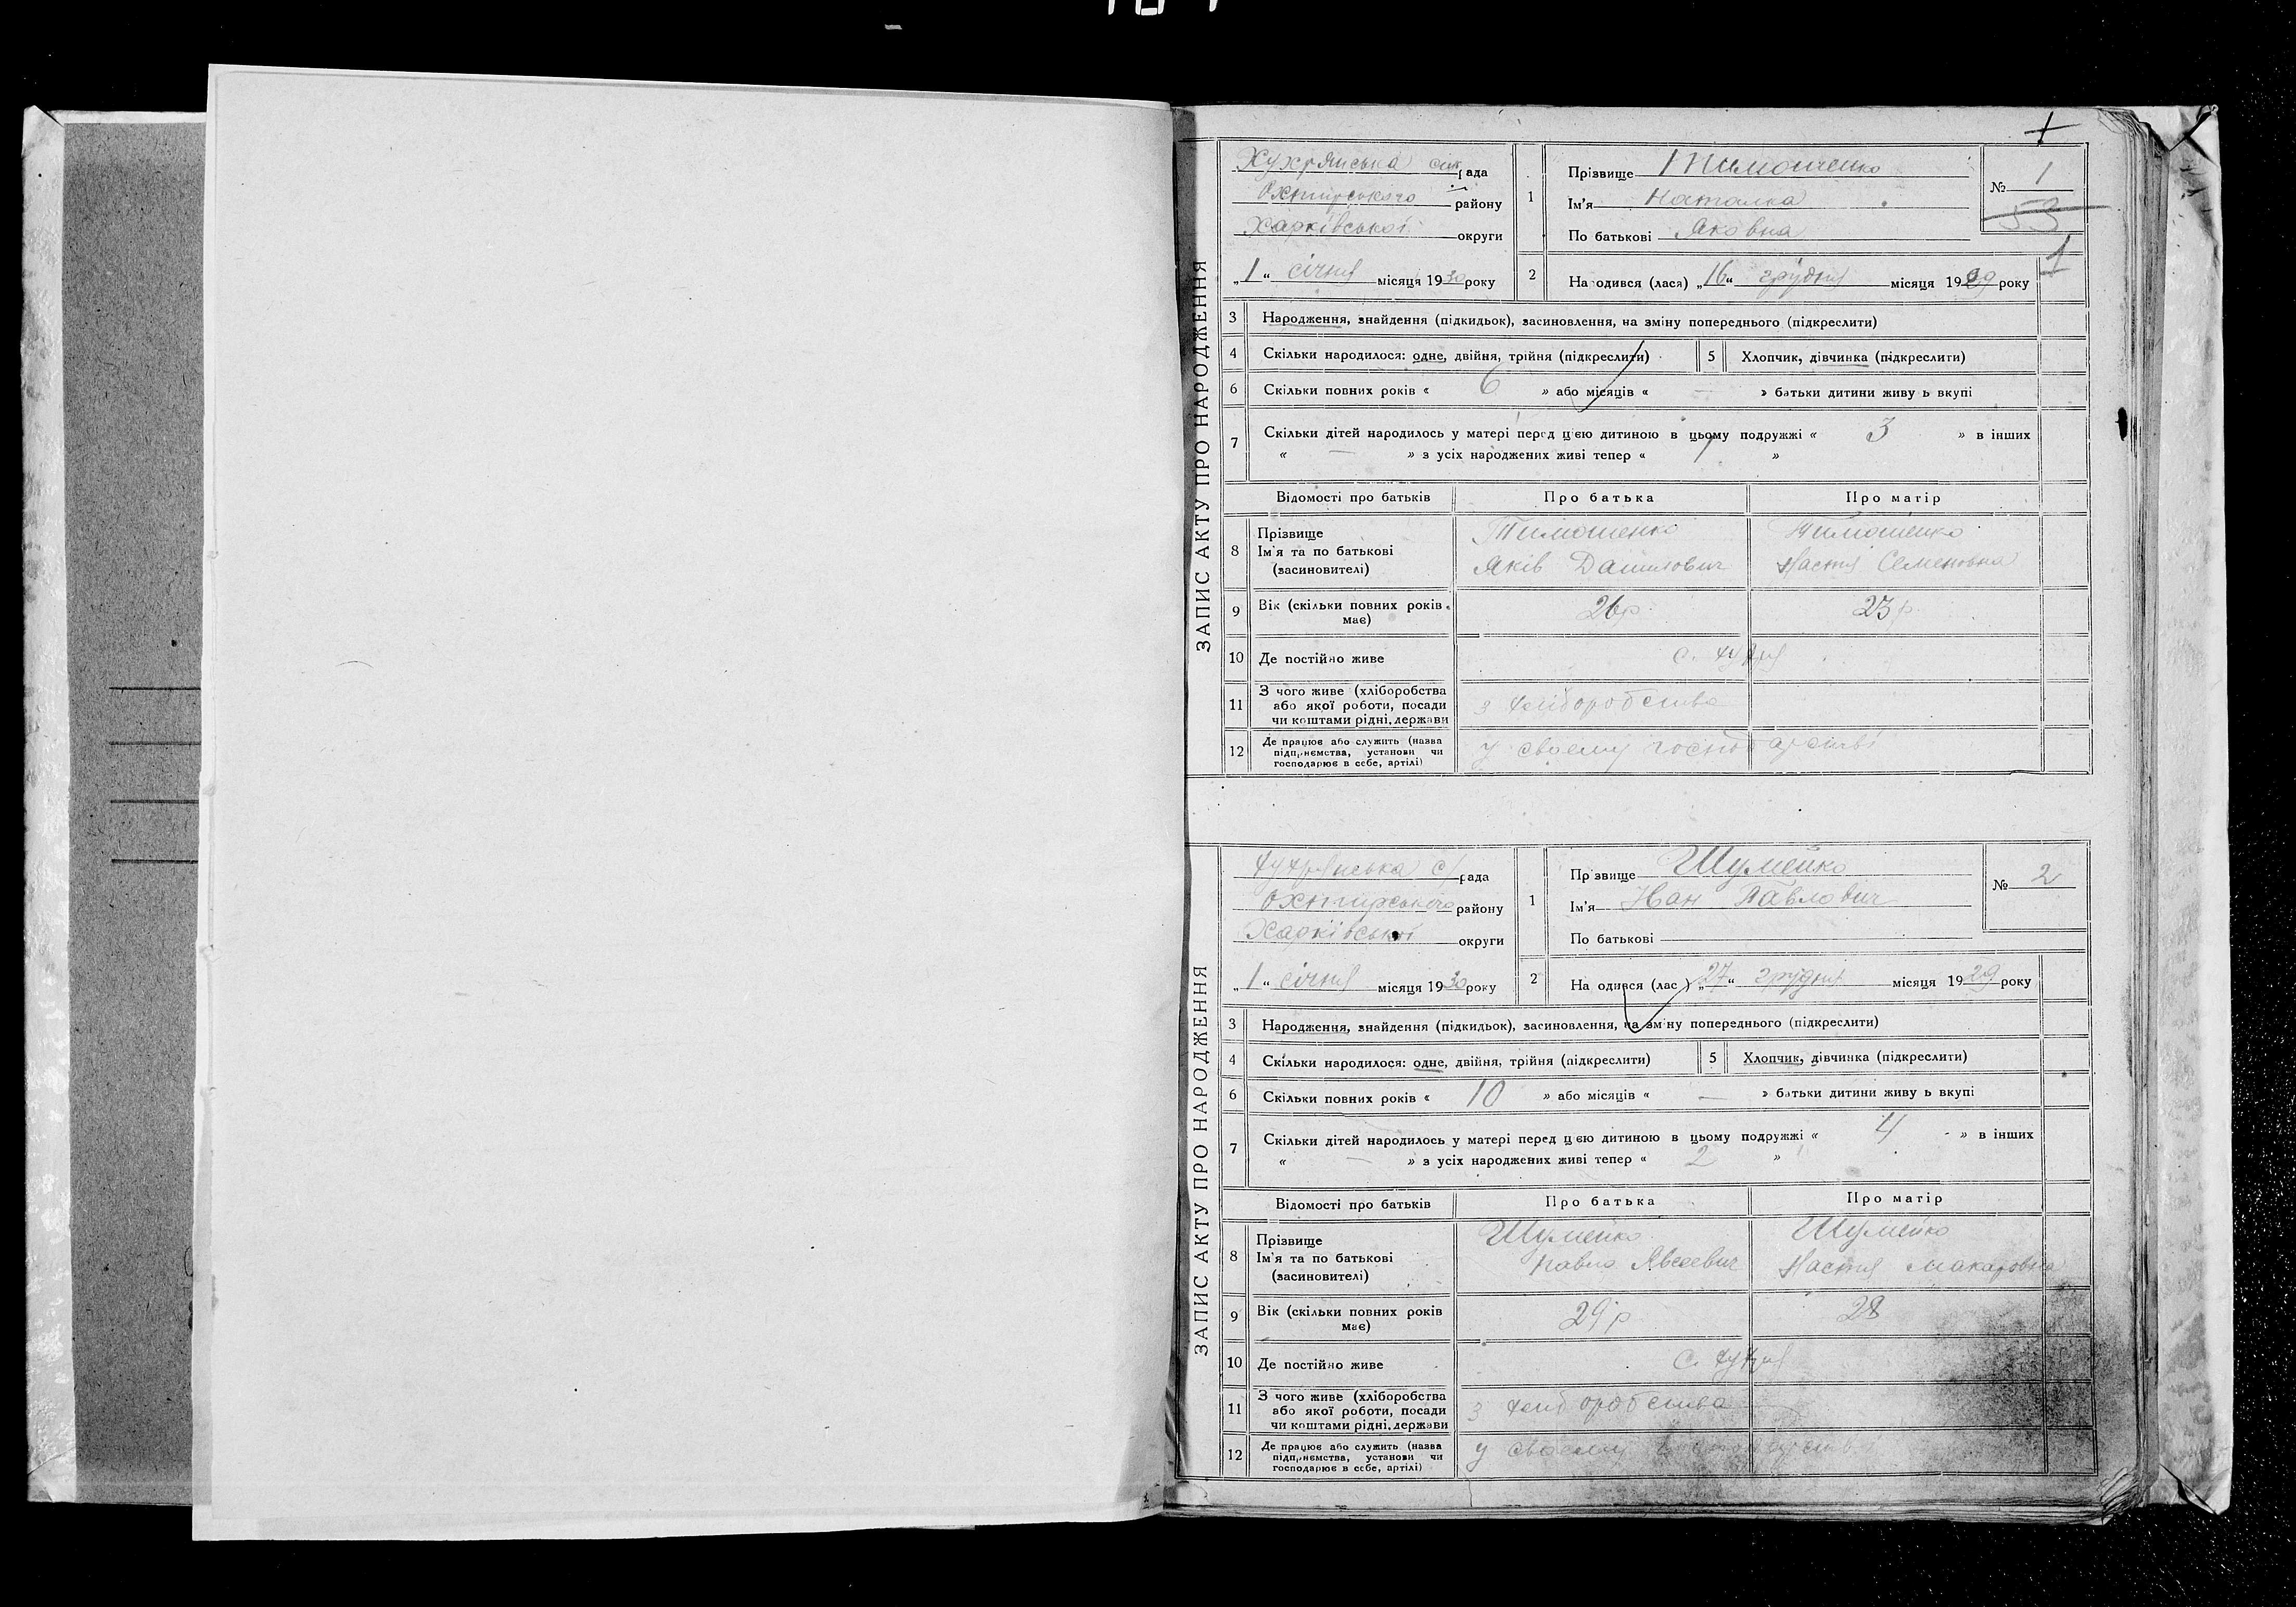 ЗАПИС АКТУ ПРО НАРОДЖЕННЯ
Хухрянська сіл рада
Охтирського району
Харківської округи
„1“ січня місяця 1930 року
1
Прізвище Тимошенко
Ім'я Наталка
По батькові Яковна
№ 1
53
1
2 Народився (лася) „16“ грудня місяця 1929 року
3 Народження, знайдення (підкидьок), засиновлення, на зміну попереднього (підкреслити)
4 Скільки народилося: одне, двійня, трійня (підкреслити) 5 Хлопчик, дівчинка (підкреслити)
6 Скільки повних років « 6 » або місяців « — » батьки дитини живу ь вкупі
7 Скільки дітей народилось у матері перед цією дитиною в цьому подружжі « 3 » в інших
« — » з усіх народжених живі тепер « 1 »
Відомості про батьків Про батька Про матір
8 Прізвище Ім'я та по батькові (засиновителі)
Тимошенко
Яків Данилович
Тимошенко
Настя Семеновна
9 Вік (скільки повних років має) 26 р. 23 р.
10 Де постійно живе с. Хухря
11 З чого живе (хліборобства
або якої роботи, посади
чи коштами рідні, держави
з хліборобства
12 Де працює або служить (назва
підприємства, установи чи
господарює в себе, артілі)
у своєму господарстві
ЗАПИС АКТУ ПРО НАРОДЖЕННЯ
Хухрянська с/рада
Охтирського району
Харківської округи
„1“ січня місяця 1930 року
1
Прізвище Шумейко
Ім'я Іван Павлович
По батькові
№ 2
2 На одився (лас ) „27“ грудня місяця 1929 року
3 Народження, знайдення (підкидьок), засиновлення, на зміну попереднього (підкреслити)
4 Скільки народилося: одне, двійня, трійня (підкреслити) 5 Хлопчик, дівчинка (підкреслити)
6 Скільки повних років « 10 » або місяців « — » батьки дитини живу ь вкупі
7 Скільки дітей народилось у матері перед цією дитиною в цьому подружжі « 4 » в інших
« — » з усіх народжених живі тепер « 2 »
Відомості про батьків Про батька Про матір
8 Прізвище Ім'я та по батькові (засиновителі)
Шумейко
Павло Явсеевич
Шумейко
Настя Макаровна
9 Вік (скільки повних років має) 29 р 28
10 Де постійно живе С. Хухря
11 З чого живе (хліборобства
або якої роботи, посади
чи коштами рідні, держави
з хліборобства
12 Де працює або служить (назва
підприємства, установи чи
господарює в себе, артілі)
у своєму господарстві